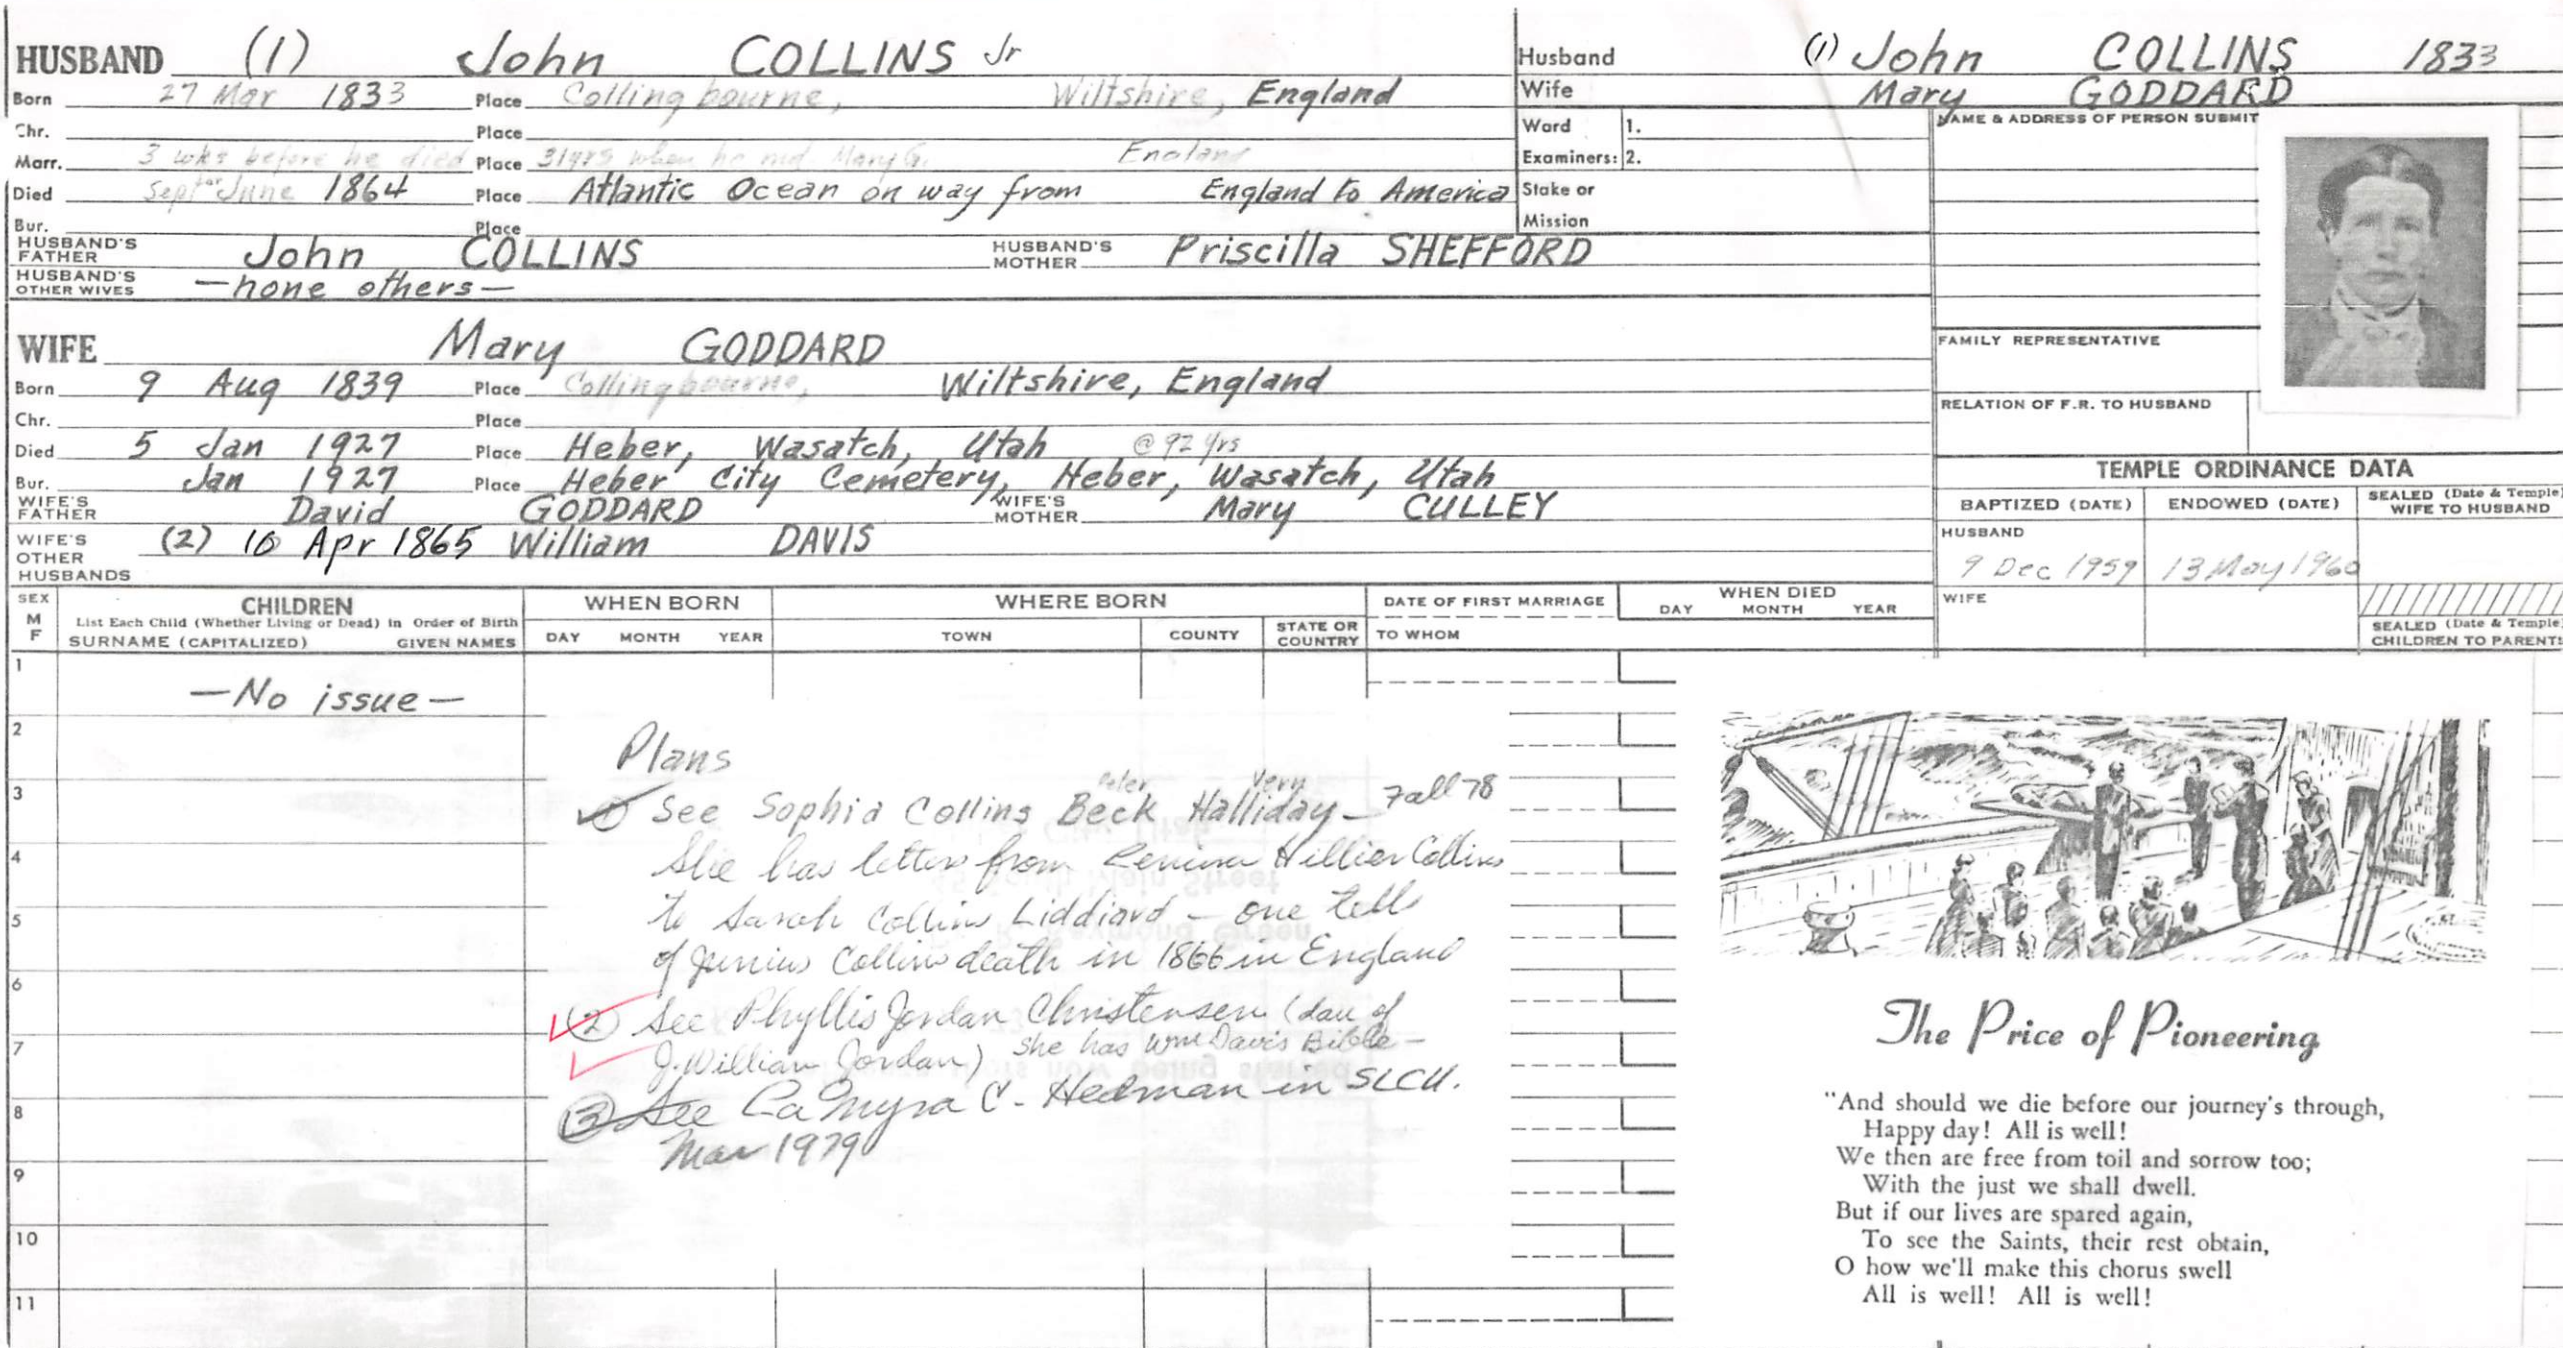 HUSBAND (1) John COLLINS Jr
Born 27 Mar 1833 Place Collingbourne, Wiltshire, England
Chr. Place
Marr. 3 wks before he died Place 31 yrs when he md. Mary G. England
Died Sept or June 1864 Place Atlantic Ocean on way from England to America
Bur. Place
HUSBAND'S FATHER John COLLINS HUSBAND'S MOTHER Priscilla SHEFFORD
HUSBAND'S OTHER WIVES —none others—
WIFE Mary GODDARD
Born 9 Aug 1839 Place Collingbourne, Wiltshire, England
Chr. Place
Died 5 Jan 1927 Place Heber, Wasatch, Utah @ 92 yrs
Bur. Jan 1927 Place Heber City Cemetery, Heber, Wasatch, Utah
WIFE'S FATHER David GODDARD WIFE'S MOTHER Mary CULLEY
WIFE'S OTHER HUSBANDS (2) 10 Apr 1865 William DAVIS
Husband (1) John COLLINS 1833
Wife Mary GODDARD
Ward 1.
Examiners: 2.
Stake or
Mission
NAME & ADDRESS OF PERSON SUBMIT
FAMILY REPRESENTATIVE
RELATION OF F.R. TO HUSBAND
TEMPLE ORDINANCE DATA
BAPTIZED (DATE) ENDOWED (DATE) SEALED (Date & Temple) WIFE TO HUSBAND
HUSBAND
9 Dec 1959 13 May 1960
WIFE
SEALED (Date & Temple)
CHILDREN TO PARENTS
SEX M F
CHILDREN
List Each Child (Whether Living or Dead) in Order of Birth
SURNAME (CAPITALIZED) GIVEN NAMES
WHEN BORN
DAY MONTH YEAR
WHERE BORN
TOWN COUNTY STATE OR COUNTRY
DATE OF FIRST MARRIAGE
TO WHOM
WHEN DIED
DAY MONTH YEAR
1
—No issue—
2
3
4
5
6
7
8
9
10
11
Plans
Vern
(1) See Sophia Collins Beck Halliday — Fall 78
She has letters from Hillier Collins
to Sarah Collins Liddiard — one tells
of Junius Collins death in 1866 in England
(2) See Phyllis Jordan Christensen (dau of
J. William Jordan) she has Wm Davis Bible —
(3) See LaMyra C. Hedman in SLCU.
Mar 1979
The Price of Pioneering
"And should we die before our journey's through,
Happy day! All is well!
We then are free from toil and sorrow too;
With the just we shall dwell.
But if our lives are spared again,
To see the Saints, their rest obtain,
O how we'll make this chorus swell
All is well! All is well!